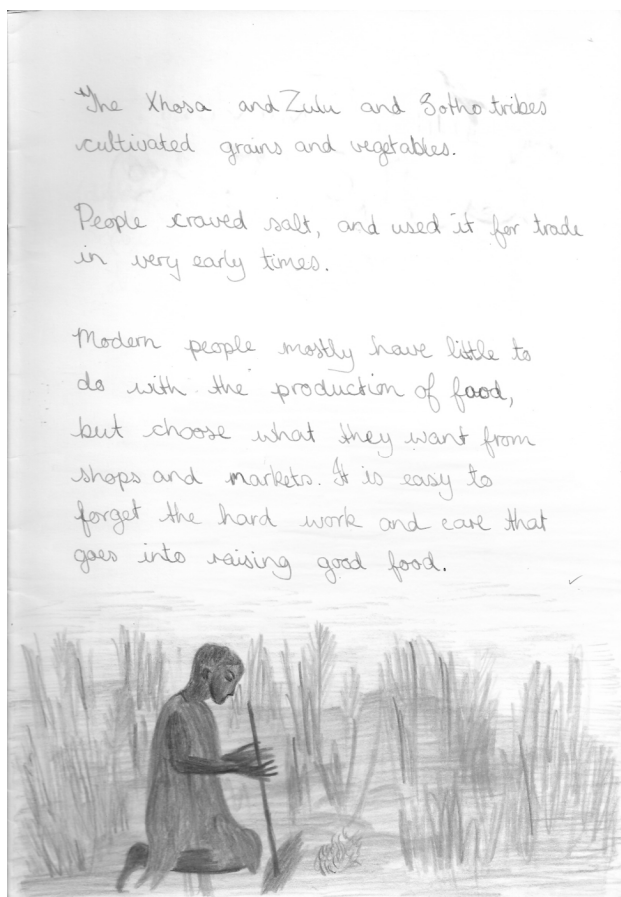 The Xhosa and Zulu and Sotho tribes
cultivated grains and vegetables.
People craved salt, and used it for trade
in very early times.
Modern people mostly have little to
do with the production of food,
but choose what they want from
shops and markets. It is easy to
forget the hard work and care that
goes into raising good food.